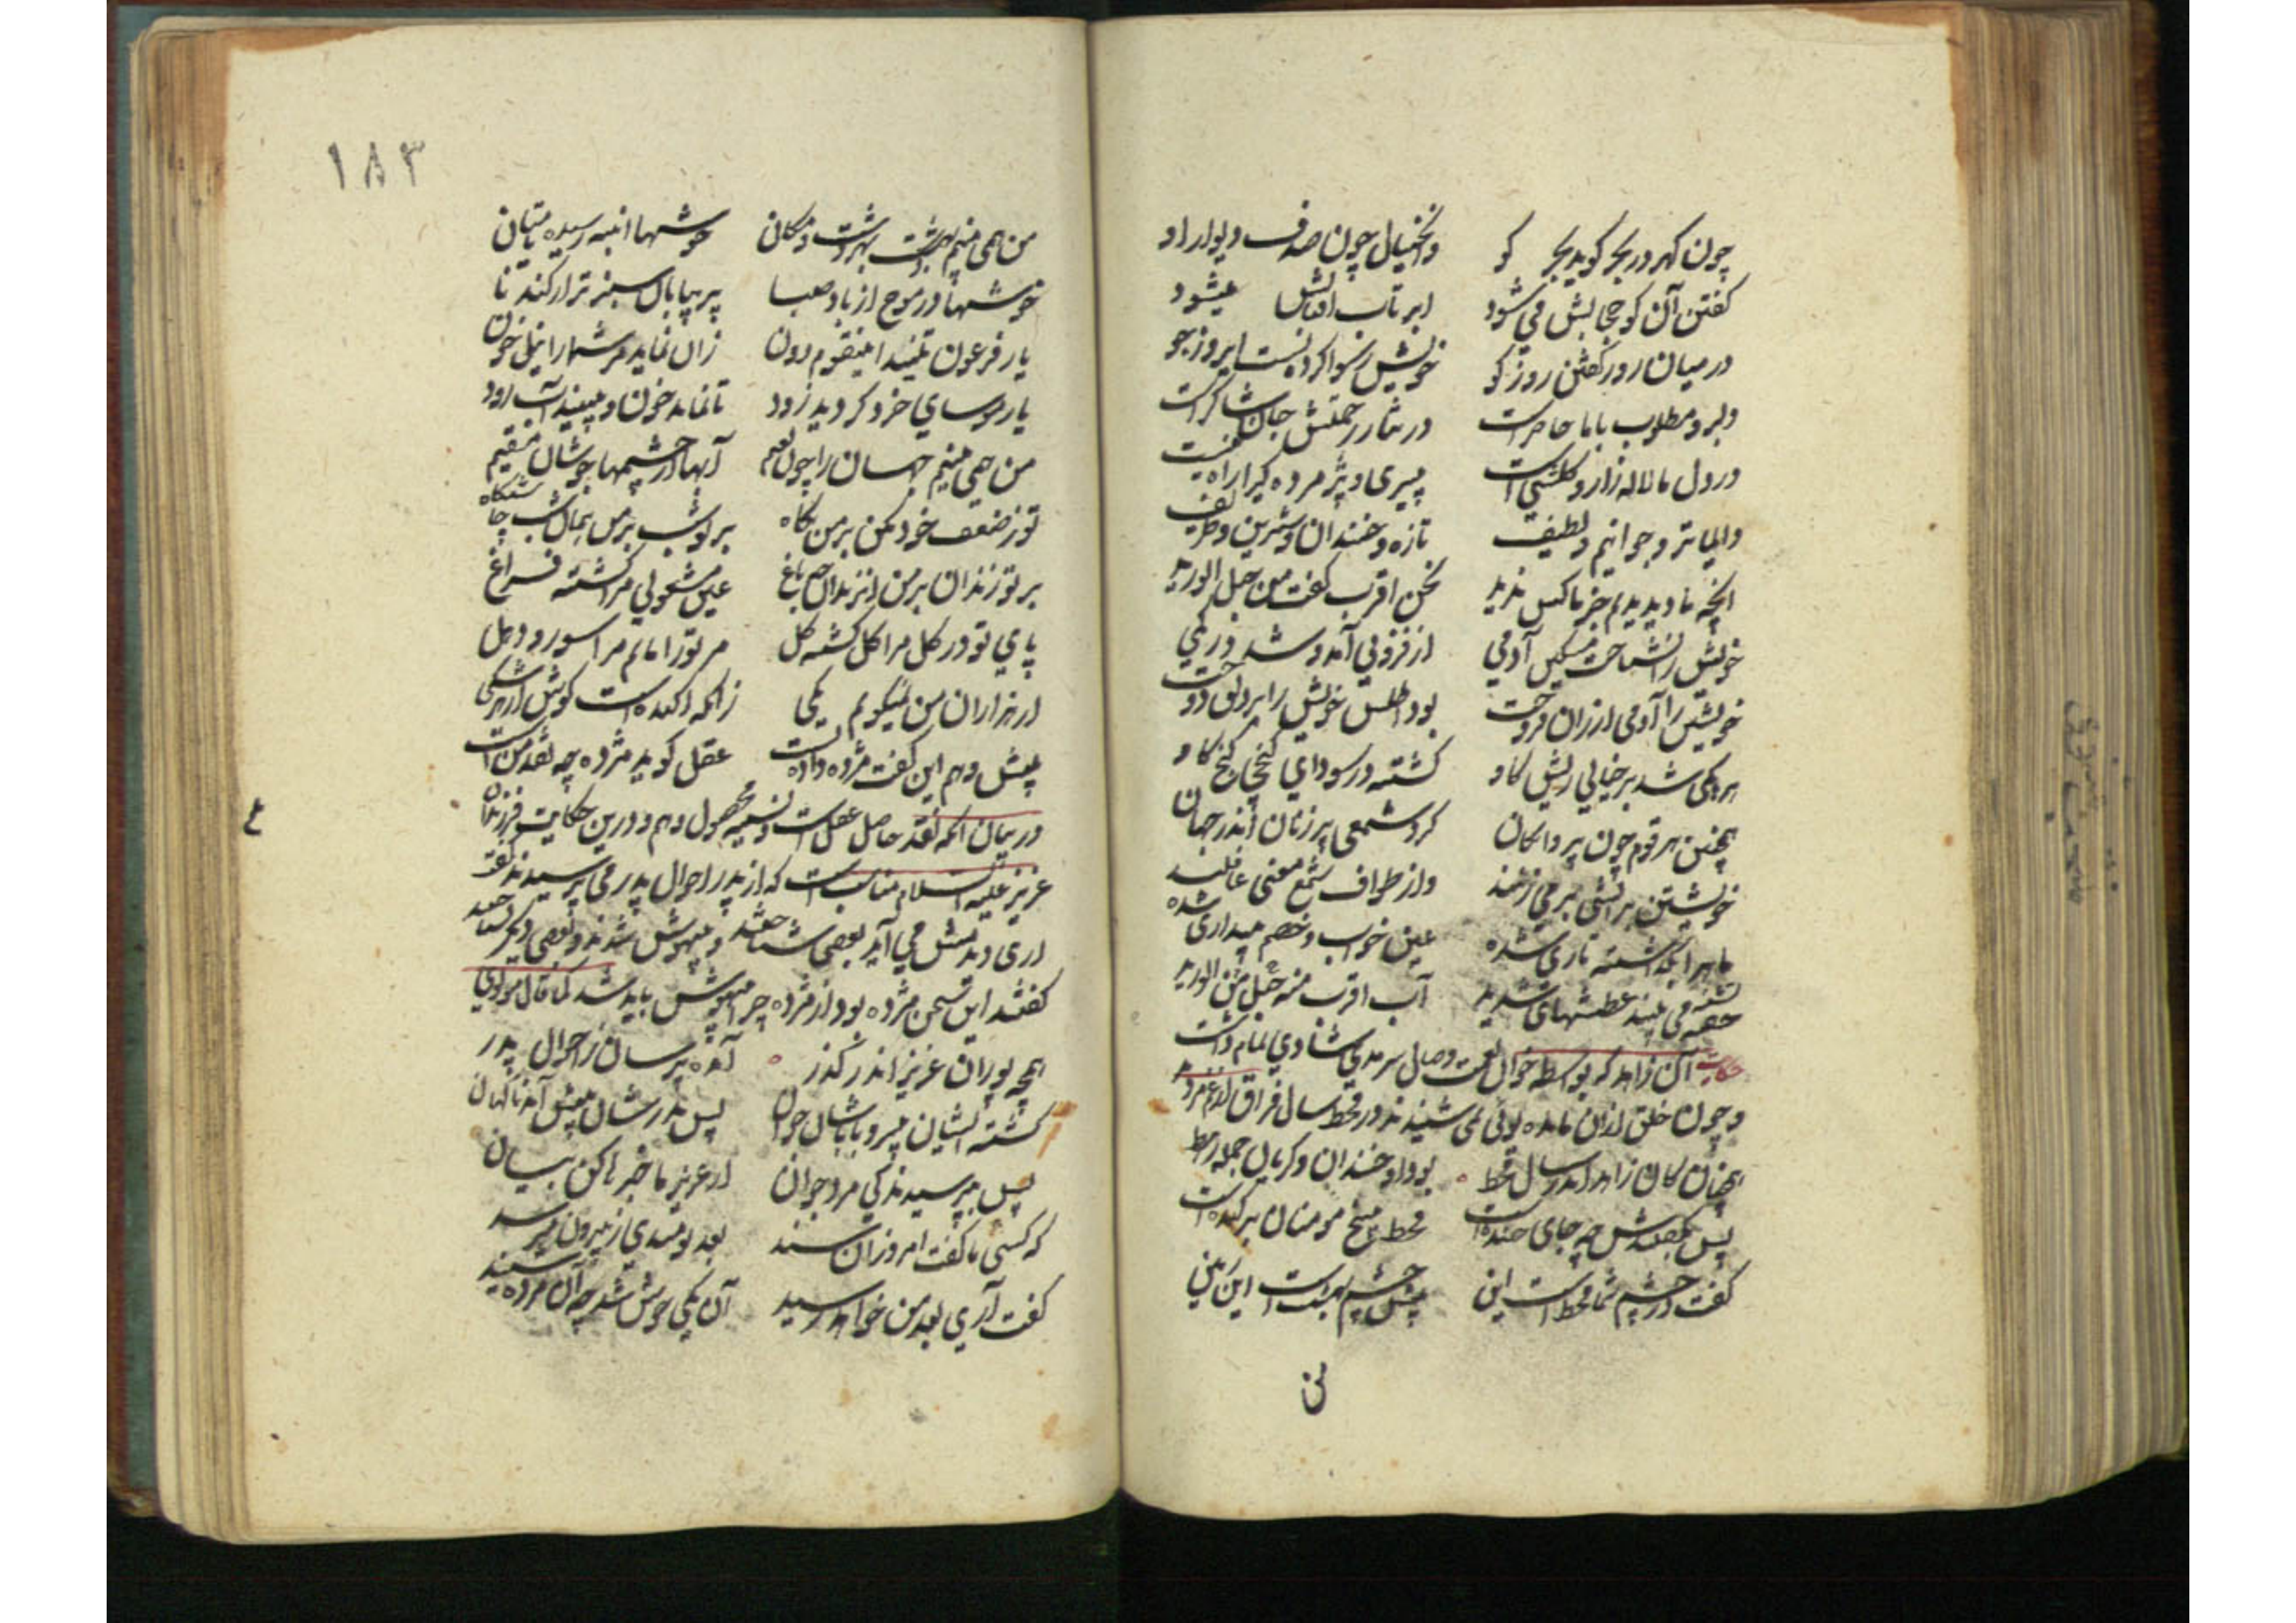 چون گهر در بحر گوید بحر کو وانخیال چون صدف دیوار او
گفتن آن کو حجابش می شود ابر تاب افتابش میشود
در میان روز گفتن روز کو خویش رسوا کردنست ایروز جو
دلبر و مطلوب باما حاضرست در نثار رحمتش جان شاکرست
در دل ما لاله زار و گلشنی است پیری و پژمرده گیرا راه نیست
دایما تر و جوانیم و لطیف تازه و خندان و شیرین و ظریف
انچه ما دیدیم جز ما کس ندید نحن اقرب گفت من حبل الورید
خویش را نشناخت مسکین آدمی از فزونی آمد و شد در کمی
خویشتن را آدمی ارزان فروخت بود اطلس خویش را بر دلق دوخت
هر یکی شد بر خیالی ریش گاو گشته در سودای گنجی کنج کاو
همچنین هر قوم چون پروانگان گرد شمعی پر زنان اندر جهان
خویشتن بر آتشی بر می زنند واز طواف شمع معنی غافلند
ما بر انگه گشته ناری شده عین خواب و خصم بیداری شده
خفته می بیند عطشهای شدید آب اقرب منه حبل من الورید
حکایت آن زاهد که بواسطه خوان نعمت وصال سرمدی شادی تمام داشت
و چون خلق ازان مائده بوئی نمی شنیدند در قحط سال فراق از غم مردند
همچنان کان زاهد اندر سال قحط بود او خندان و گریان جمله رهط
پس بگفتندش چه جای خنده است قحط بیخ مومنان بر کنده است
گفت در چشم شما قحط است این پیش چشمم بهشت است این زمین
من
۱۸۳
من همی بینم بهر دشت و مکان خوشها انبه رسیده تا میان
خوشها در موج از باد صبا پر بیابان سبز تر از گندنا
یار فرعون تنید ای قوم دون زان نماید مر شما را نیل خون
یار موسای خرد گردید زود تا نماند خون و بینید آب رود
من همی بینم جهان را چون نعیم آبها از چشمها جوشان مقیم
تو ز ضعف خود مکن بر من نگاه بر تو شب بر من همان شب چاشتگاه
بر تو زندان بر من ان زندان چو باغ عین مشغولی مرا گشته فراغ
پای تو در گل مرا گل گشته گل مر ترا ماتم مرا سور و دهل
از هزاران من نمیگویم یکی زانکه اکنده است گوش از هر شکی
پیش وهم این گفت مژده دادنست عقل گوید مژده چه نقد منست
در بیان انکه نقد حاصل عقل است و نسیه محصول وهم و درین حکایت فرزندان
ع
عزیز علیه السلام مناسب است که از پدر احوال پدر می پرسیدند گفت
اری دیدمش می آید بعضی شناختند و بیهوش شدند و بعضی دیگر نشناختند
گفتند این شخص مژده بود از مژده چرا بیهوش باید شد کما قال مولوی
همچو پوران عزیز اندر گذر آمده پرسان ز احوال پدر
گشته ایشان پیر و باباشان جوان پس پدرشان پیش آمد ناگهان
پس بپرسیدند کی مرد جوان از عزیز ما خبرها کن بیان
که کسی ما گفت امروز ان سند بعد نومیدی ز بیرون میرسد
گفت آری بعد من خواهد رسید آن یکی خوش شد چو آن مژده شنید